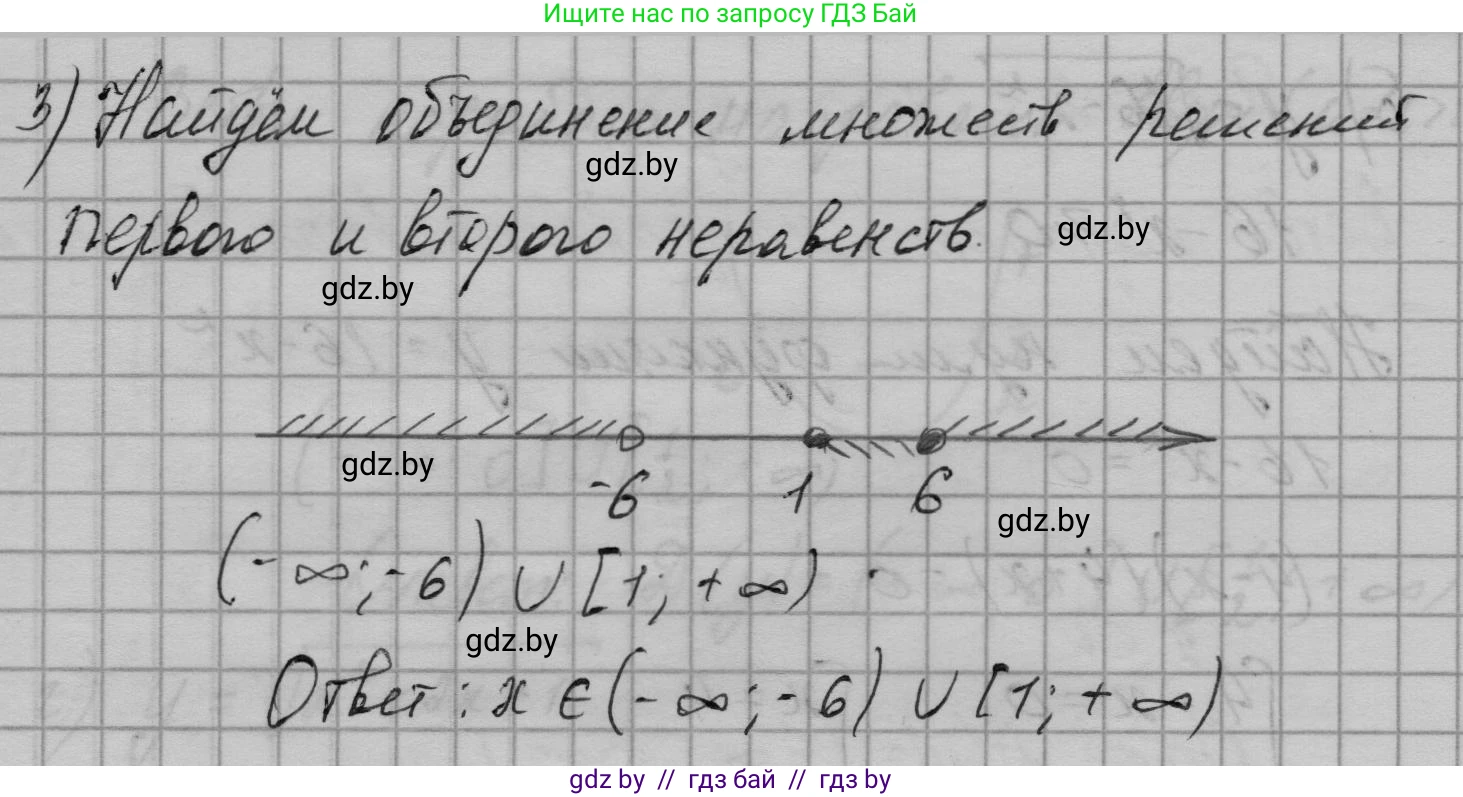 Ищите нас по запросу ГДЗ Бай
3) Найдём объединение множеств решений
gdz.by
первого и второго неравенств.
gdz.by
gdz.by
gdz.by
-6 1 6
gdz.by
(-∞; -6) ∪ [1; +∞)
gdz.by
Ответ: x ∈ (-∞; -6) ∪ [1; +∞)
gdz by // гдз бай // гдз by